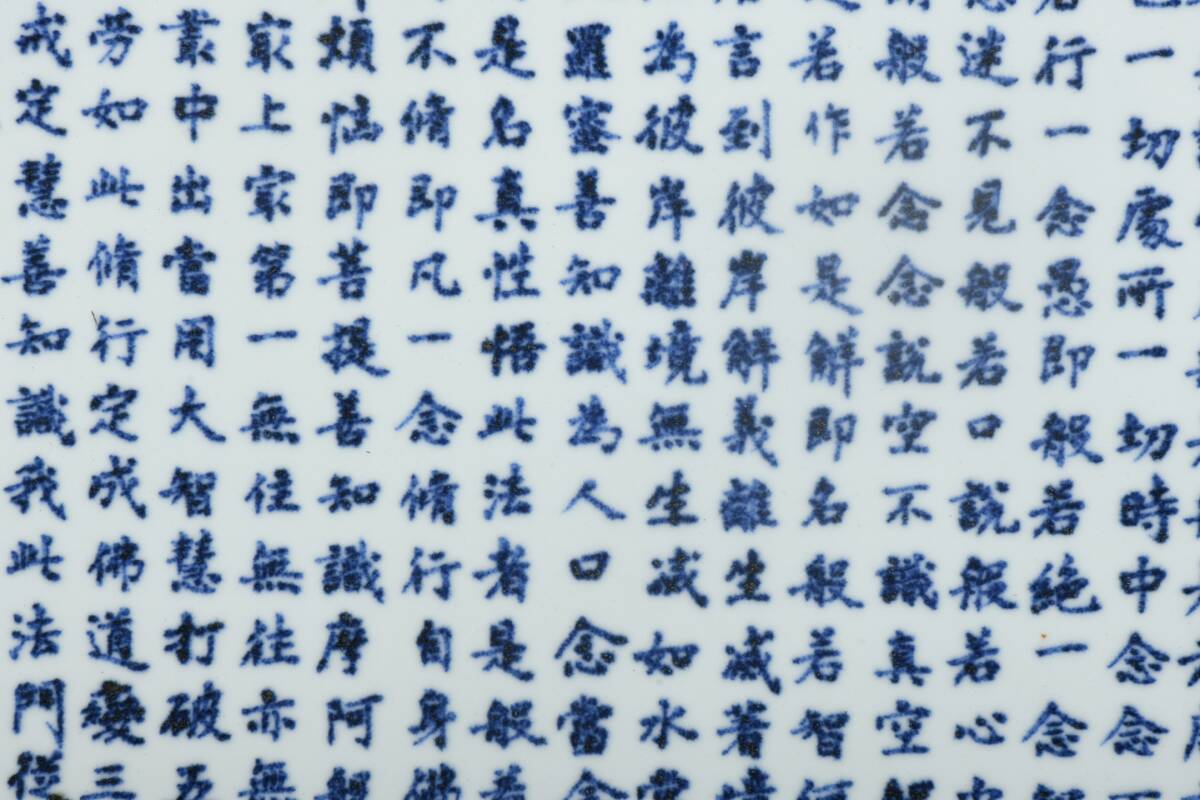 一切處所一切時中念念不
行一念愚即般若絕一念智
迷不見般若口說般若心中
般若念念說空不識真空般
若作如是解即名般若智何
言到彼岸解義離生滅著境
為彼岸離境無生滅如水常
羅蜜善知識為人口念當念
是名真性悟此法者是般若
不脩即凡一念脩行自身佛
煩惱即菩提善知識摩阿般
㝡上㝡第一無住無往亦無
叢中出當用大智慧打破五
勞如此脩行定成佛道變三
戒定慧善知識我此法門從